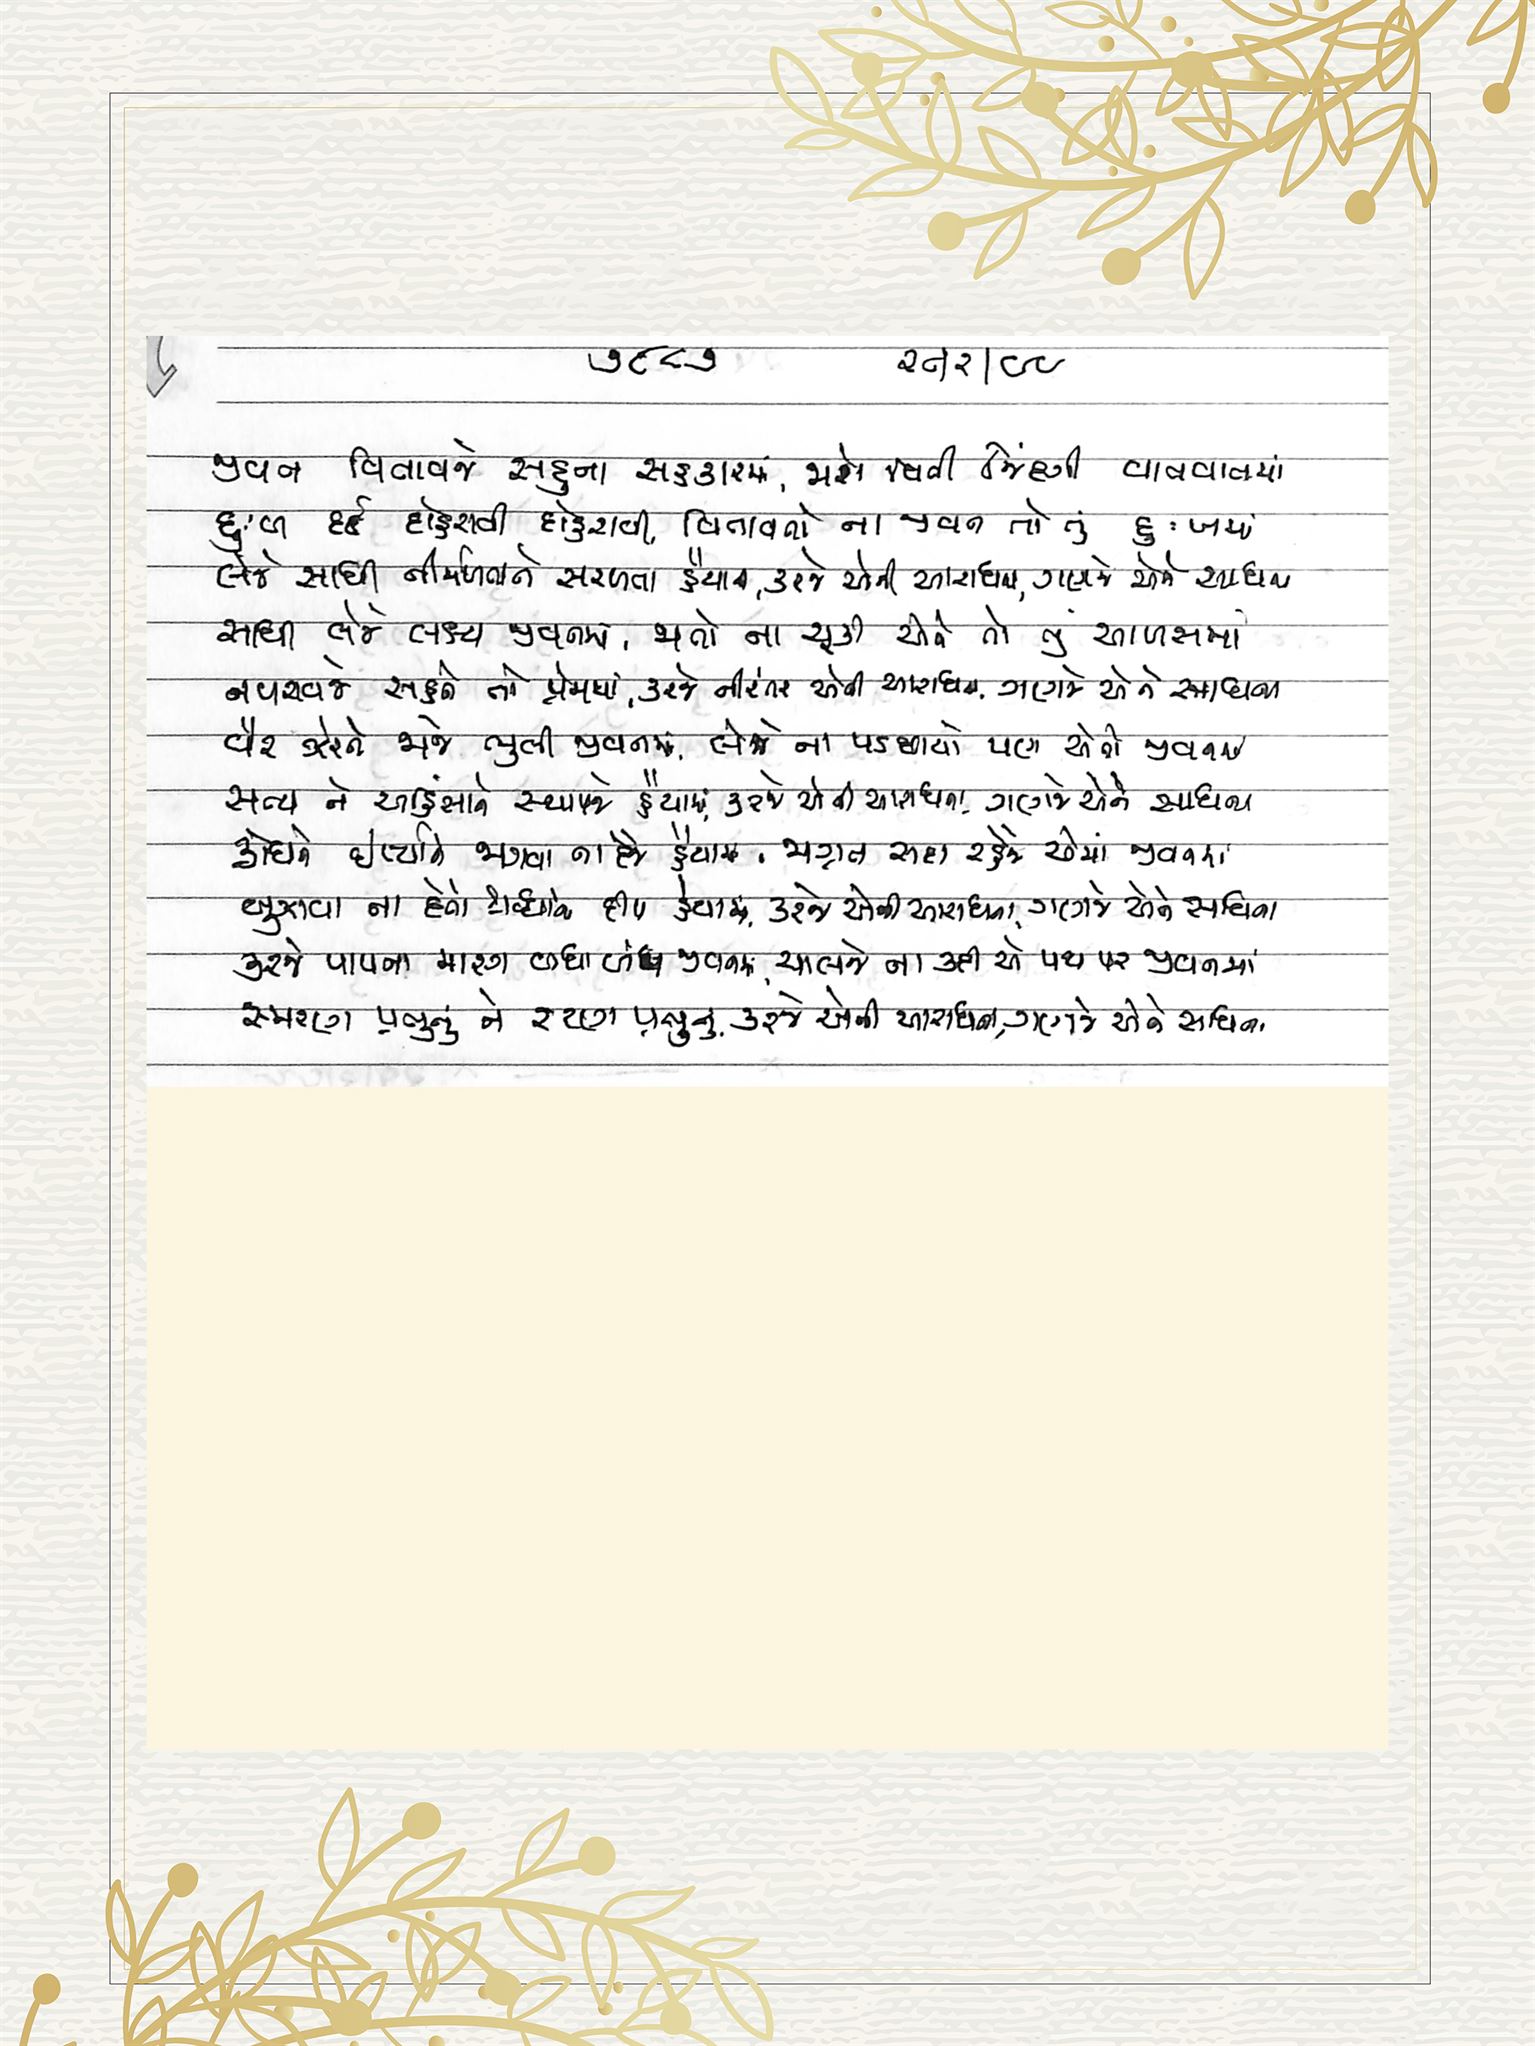 ૭૯૮૭ ૨૫/૨/૯૯
જીવન વિતાવજે સહુના સહકારમાં, જાશે વીતી જિંદગી વાતવાતમાં
દુઃખ દર્દ દોહરાવી દોહરાવી, વિતાવતો ના જીવન તો તું દુઃખમાં
લેજે સાધી નીર્મળતાને સરળતા હૈયામાં, કરજે એની આરાધના, ગણજે એને સાધના
સાધી લેજે લક્ષ્ય જીવનમાં, જાતો ના ચૂકી એને તો તું આળસમાં
નવરાવજે સહુને તો પ્રેમમાં, કરજે નીરંતર એની આરાધના, ગણજે એને સાધના
વૈર ઝેરને જાજે ભુલી જીવનમાં, લેજે ના પડછાયો પણ એનો જીવનમાં
સત્ય ને અહિંસાને સ્થાપજે હૈયામાં, કરજે એની આરાધના, ગણજે એને સાધના
ક્રોધને ઈર્ષ્યાને જાગવા ના દેજે હૈયામાં, જાગ્રત સદા રહેજે એમાં જીવનમાં
બુઝાવા ના દેતો દીપ હૈયામાં, કરજે એની આરાધના, ગણજે એને સાધના
કરજે પાપના મારગ બધા બંધ જીવનમાં, ચાલજે ના કદી એ પથ પર જીવનમાં
સ્મરણ પ્રભુનું ને રટણ પ્રભુનું, કરજે એની આરાધના, ગણજે એને સાધના